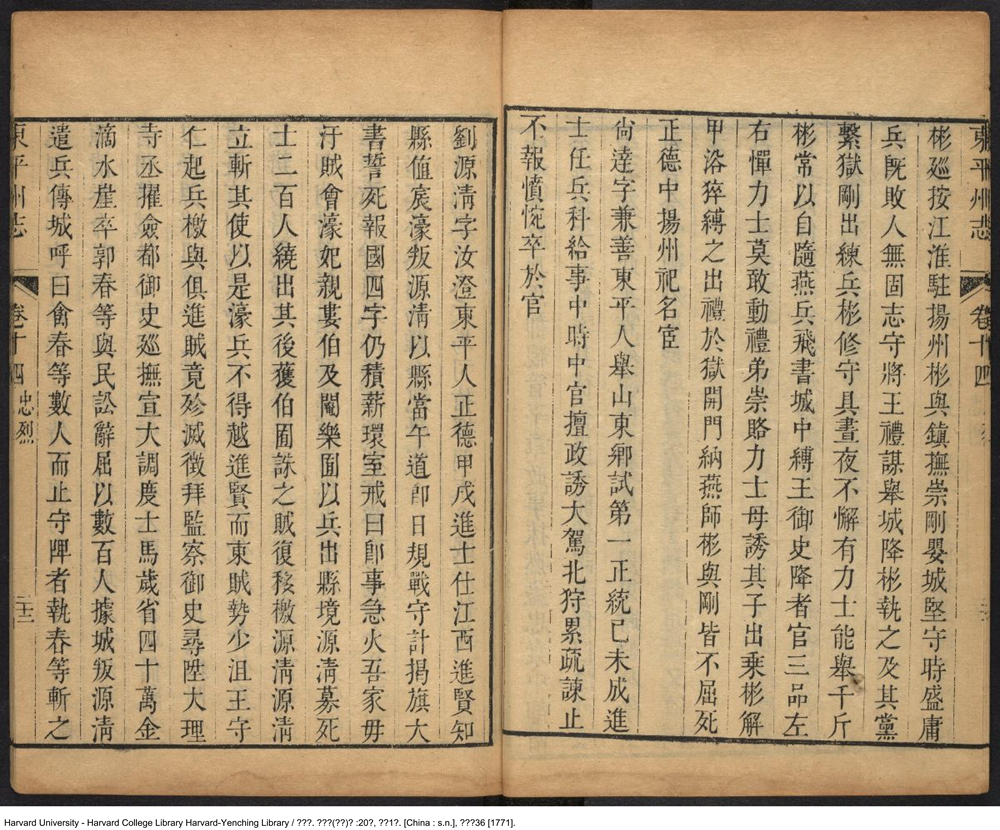 東平州志
卷十四
彬廵按江淮駐揚州彬與鎮撫崇剛嬰城堅守時盛庸
兵旣敗人無固志守將王禮謀舉城降彬執之及其黨
繫獄剛出練兵彬修守具晝夜不懈有力士能舉千斤
彬常以自隨燕兵飛書城中縛王御史降者官三品左
右憚力士莫敢動禮弟崇賂力士母誘其子出乘彬解
甲浴猝縛之出禮於獄開門納燕師彬與剛皆不屈死
正德中揚州祀名宦
尙達字兼善東平人舉山東鄉試第一正統己未成進
士任兵科給事中時中官擅政誘大駕北狩累疏諫止
不報憤惋卒於官
劉源淸字汝澄東平人正德甲戌進士仕江西進賢知
縣值宸濠叛源淸以縣當午道卽日規戰守計揭旗大
書誓死報國四字仍積薪環室戒曰卽事急火吾家毋
汙賊會濠妃親婁伯及閹樂圄以兵出縣境源淸募死
士二百人繞出其後獲伯圄誅之賊復移檄源淸源淸
立斬其使以是濠兵不得越進賢而東賊勢少沮王守
仁起兵檄與俱進賊竟殄滅徵拜監察御史尋陞大理
寺丞擢僉都御史廵撫宣大調度士馬歲省四十萬金
滴水崖卒郭春等與民訟辭屈以數百人據城叛源淸
遣兵傅城呼曰禽春等數人而止守陴者執春等斬之
東平州志
卷十四
忠烈
二十三
Harvard University - Harvard College Library Harvard-Yenching Library / ???. ???(??)? :20?, ??1?. [China : s.n.], ???36 [1771].